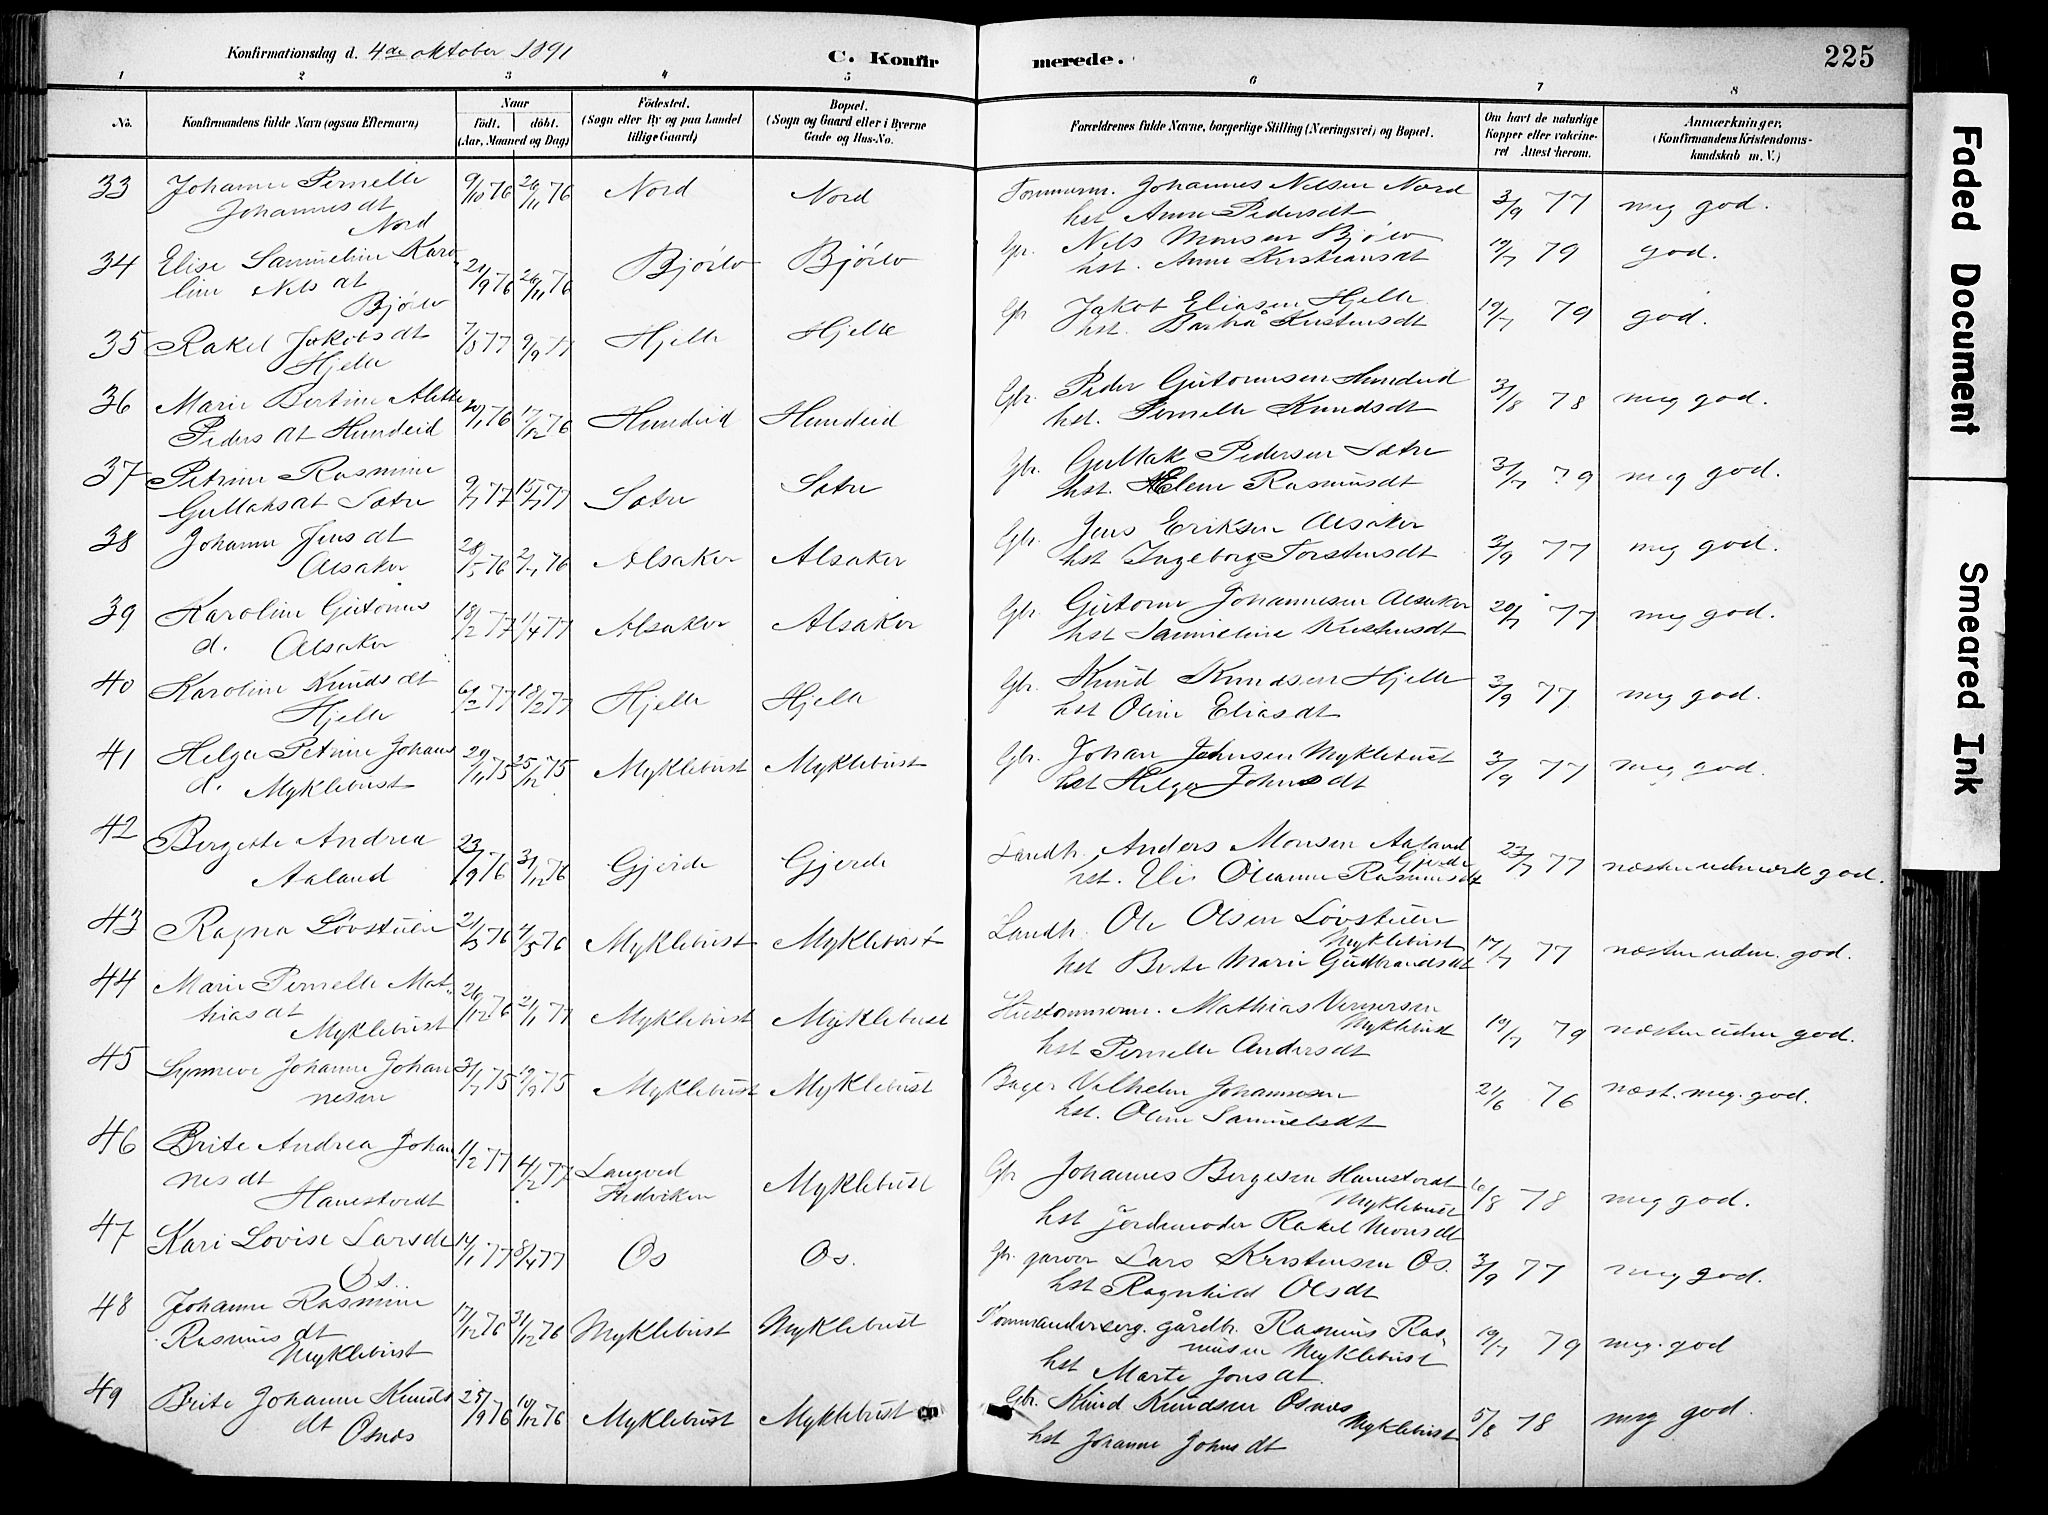 Konfirmationsdag d. 4de oktober 1891
C. Konfirmerede.
225
1 2 3 4 5 6 7 8
No.
Konfirmandens fulde Navn (ogsaa Efternavn)
Naar
födt. döbt.
(Aar, Maaned og Dag)
Födested.
(Sogn eller By og paa Landet
tillige Gaard)
Bopæl.
(Sogn og Gaard eller i Byerne
Gade og Hus-No.
Forældrenes fulde Navne, borgerlige Stilling (Næringsvei) og Bopæl.
Om havt de naturlige
Kopper eller vakcine-
ret Attest herom.
Anmærkninger,
(Konfirmandens Kristendoms-
kundskab m. V.)
33 Johanne Pernelle 9/10 76 26/11 76 Nord Nord Tømmerm. Johannes Nilsen Nord 3/9 77 meg god.
Johannesdt hst. Anne Pedersdt
Nord
34 Elise Samueline Karo- 21/9 76 26/11 76 Bjørlo Bjørlo Gbr. Nils Monsen Bjørlo 19/7 79 god.
line Nilsdt hst. Anne Kristiansdt
Bjørlo
35 Rakel Jakobsdt 7/5 77 9/9 77 Hjelle Hjelle Gbr Jakob Eliasen Hjelle 19/7 79 god.
Hjelle hst. Barbrå Kristensdt
36 Marie Bertine Alette 76 17/12 76 Hundeid Hundeid Gbr. Peder Guttormsen Hundeid 3/8 78 meg god.
Pedersdt Hundeid hst. Pernelle Knudsdt
37 Petrine Rasmine 9/7 77 15/7 77 Sætre Sætre Gbr. Gullak Pedersen Sætre 3/7 79 meg god.
Gullaksdt Sætre hst. Elene Rasmusdt
38 Johanne Jensdt 28/5 76 2/7 76 Alsaker Alsaker Gbr. Jens Eriksen Alsaker 3/9 77 meg god.
Alsaker hst Ingeborg Torstensdt
39 Karoline Guttorms 18/2 77 1/4 77 Alsaker Alsaker Gbr. Guttorm Johannesen Alsaker 20/7 77 meg god.
d. Alsaker hst Samueline Kristensdt
40 Karoline Knudsdt 77 18/2 77 Hjelle Hjelle Gbr. Knud Knudsen Hjelle 3/9 77 meg god.
Hjelle hst Oline Eliasdt
41 Helga Petrine Johans 29/11 75 25/12 75 Myklebust Myklebust Gbr. Johan Johnsen Myklebust 3/9 77 meg god.
d. Myklebust hst Helga Johnsdt
42 Bergette Andrea 23/9 76 31/12 76 Gjerde Gjerde Landh. Anders Monsen Aaland 23/7 77 næsten udmærk god.
Aaland Gjerde
hst. Elis Oleanne Rasmusdt
43 Ragna Løvstuen 21/3 76 7/5 76 Myklebust Myklebust Landh. Ole Olsen Løvstuen 17/7 77 næsten udm. god.
Myklebust
hst Brite Marie Gudbrandsdt
44 Marie Pernelle Mat- 26/12 76 21/1 77 Myklebust Myklebust Hustømmerm. Mathias Vernersen 19/7 79 næsten udm god.
hiasdt Myklebust
Myklebust hst Pernelle Andersdt
45 Synneve Johanne Johan 31/7 75 19/9 75 Myklebust Myklebust Bager Vilhelm Johannesen 21/6 76 næst. meg. god.
nesen hst. Oline Samuelsdt
46 Brite Andrea Johan 1/2 77 4/2 77 Langved Myklebust Gbr Johannes Bergesen Havestordt 6/8 78 meg god.
nesdt Indviken Myklebust
Havestordt hst jordemoder Rakel Monsdt
47 Kari Lovise Larsdt 14/1 77 8/4 77 Os Os. Gbr. garver Lars Kristensen Os. 3/9 77 meg god.
Os. hst Ragnhild Olsdt
48 Johanne Rasmine 17/12 76 31/12 76 Myklebust Myklebust Kommandersrg. gårdbr. Rasmus Ras- 19/7 79 meg. god
Rasmusdt musen Myklebust
Myklebust hst Marte Jonsdt.
49 Brite Johanne Knuds 25/9 76 10/12 76 Myklebust Myklebust Gbr. Knud Knudsen Osnes 5/8 78 meg god.
dt Osnes Myklebust
hst Johanne Johnsdt
Faded Document
Smeared Ink